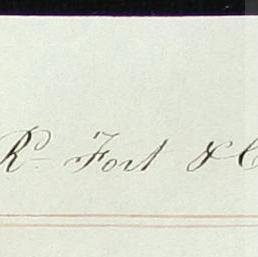 Rd Fort & C